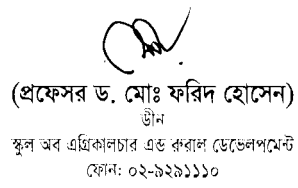 (প্রফেসর ড. মোঃ ফরিদ হোসেন)
ডীন
স্কুল অব এগ্রিকালচার এন্ড রুরাল ডেভেলপমেন্ট
ফোন: ০২-৯২৯১১১০